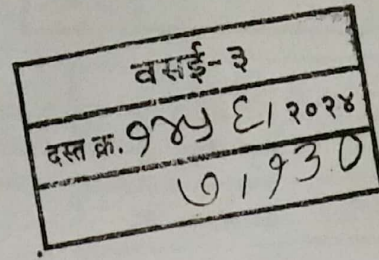 वसई-३
दस्त क्र. १४५६/२०२४
७/१३०